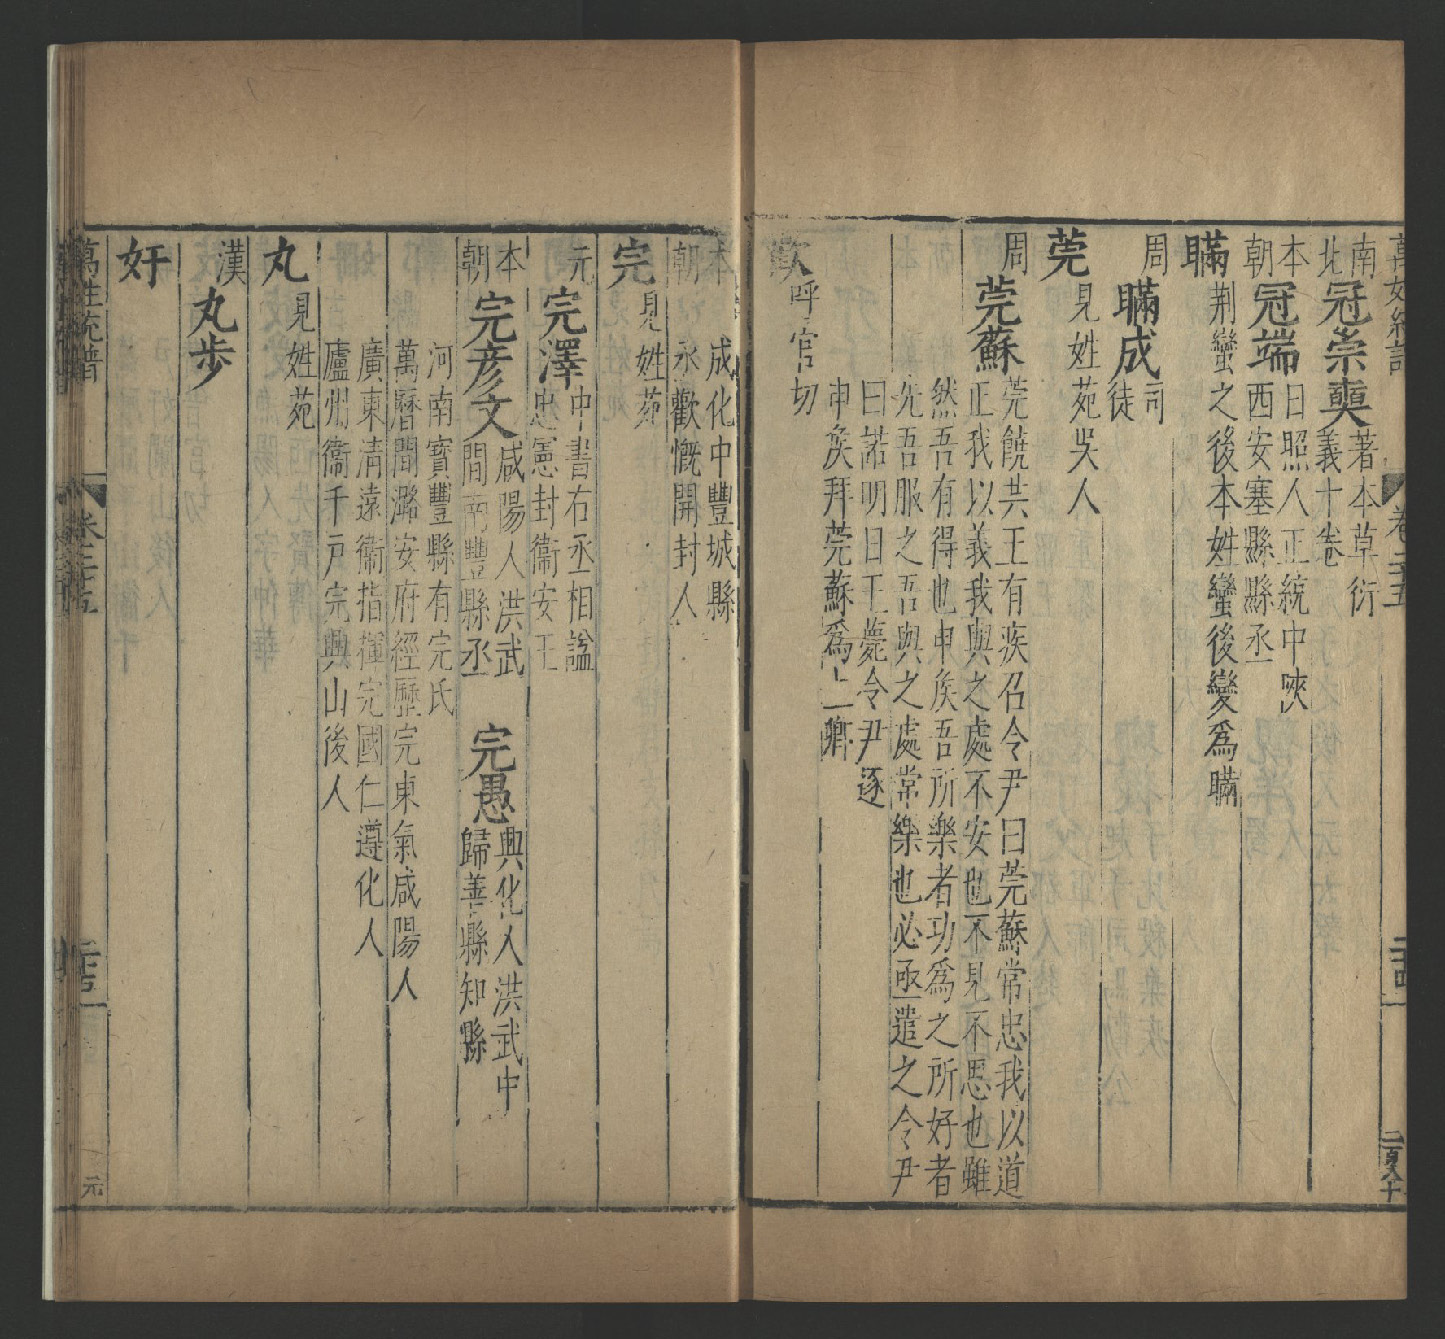 萬姓統譜 卷二十五 二十四 二百八十
南北 冠宗奭 著本草衍
義十卷
本朝 冠端 日照人正統中陝
西安塞縣縣丞
䐽 荆蠻之後本姓蠻後變爲䐽
周 䐽成 司
徒
莞 見姓苑吳人
周 莞蘇 莞饒共王有疾召令尹曰莞蘇常忠我以道
正我以義我與之處不安也不見不思也雖
然吾有得也申矦吾所樂者功爲之所好者
先吾服之吾與之處常樂也必亟遣之令尹
曰諾明日王薨令尹逐
申矦拜莞蘇爲上卿
㰱 呼官切
本朝 成化中豐城縣
丞 歡慨開封人
完 見姓苑
元 完澤 中書右丞相諡
忠憲封衞安王
本朝 完彥文 咸陽人洪武
間南豐縣丞
完愚 興化人洪武中
歸善縣知縣
河南寳豐縣有完氏
萬曆間潞安府經歷完東氣咸陽人
廣東清遠衞指揮完國仁遵化人
廬州衞千戶完興山後人
丸 見姓苑
漢 丸步
奸
萬姓統譜 卷二十五 二十五 元